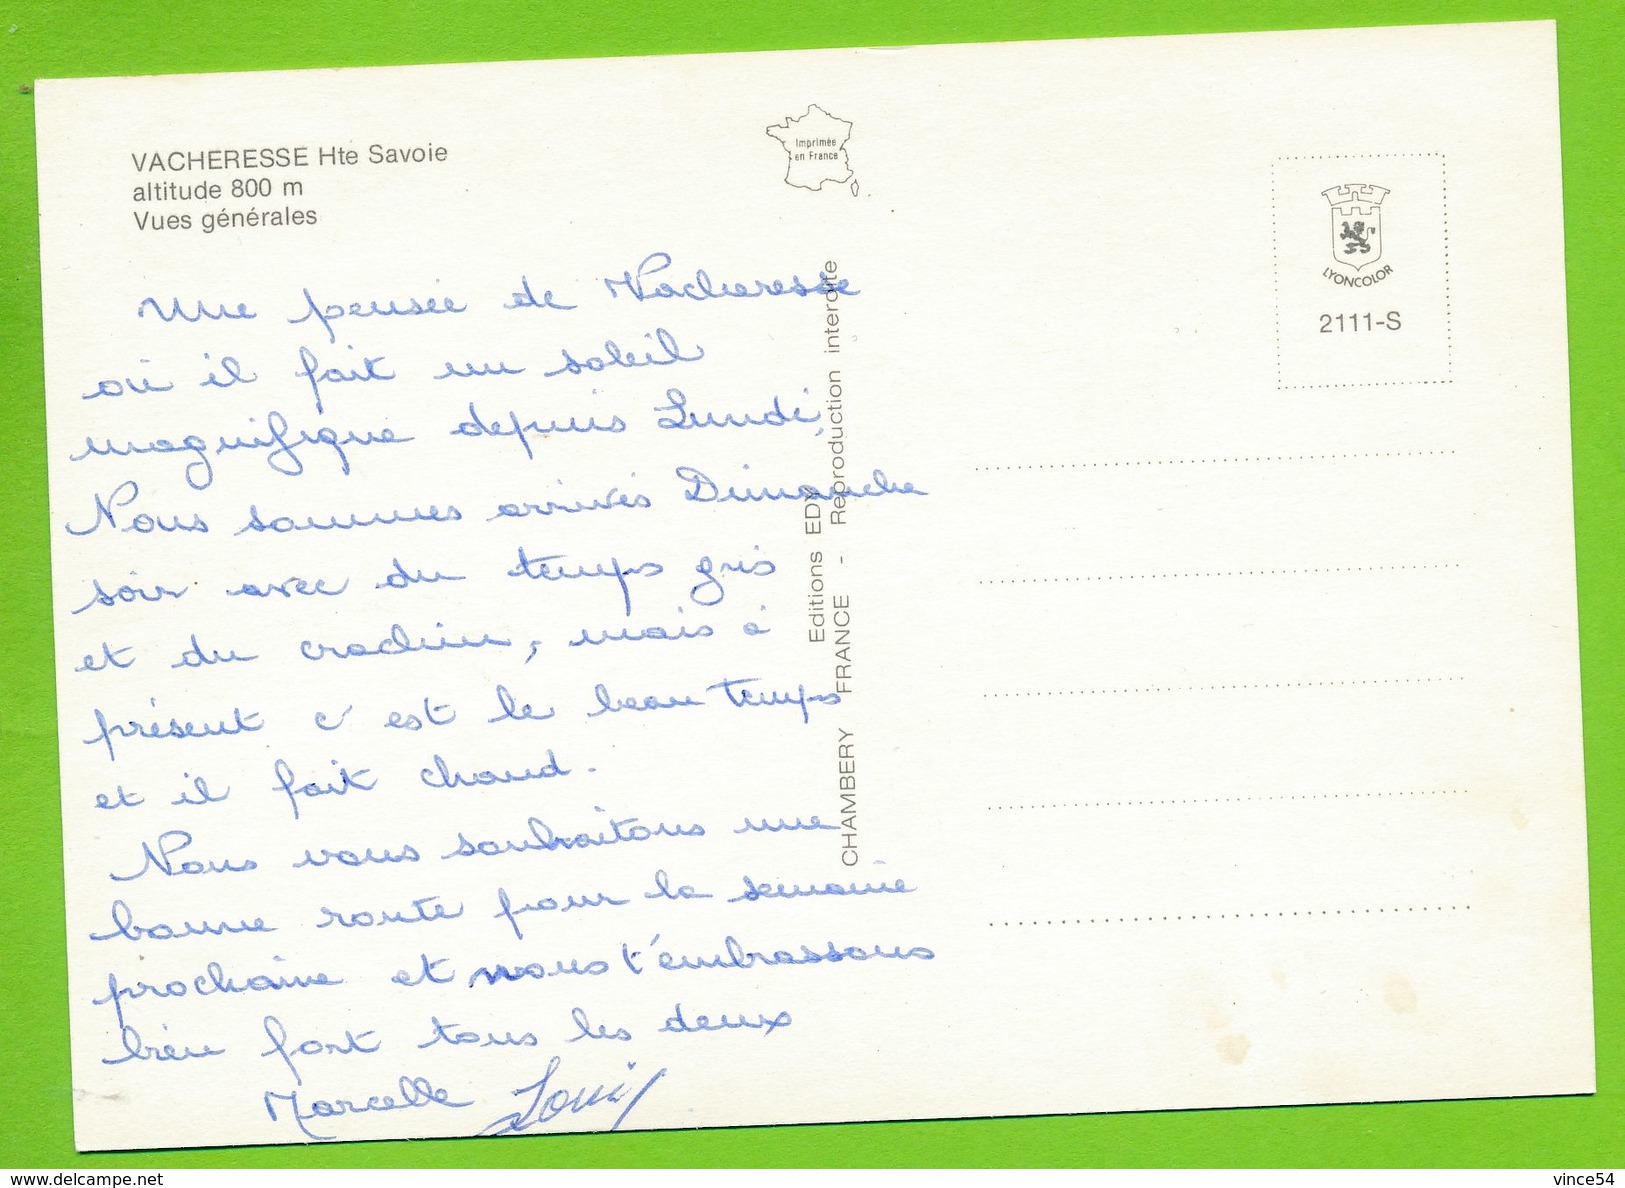 VACHERESSE Hte Savoie
altitude 800 m
Vues générales
Imprimée
en France
LYONCOLOR
2111-S
Une pensée de Vacheresse
où il fait un soleil
magnifique depuis Lundi,
Nous sommes arrivés Dimanche
soir avec du temps gris
et du crachin, mais à
présent c'est le beau temps
et il fait chaud.
Nous vous souhaitons une
bonne route pour la semaine
prochaine et nous t'embrassons
bien fort tous les deux
Marcelle Louis
Editions EDY
CHAMBERY FRANCE - Reproduction interdite
delcampe.net
vince54